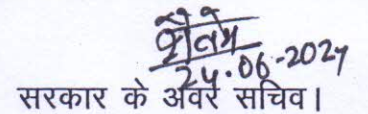 24.06-2024
सरकार के अवर सचिव।